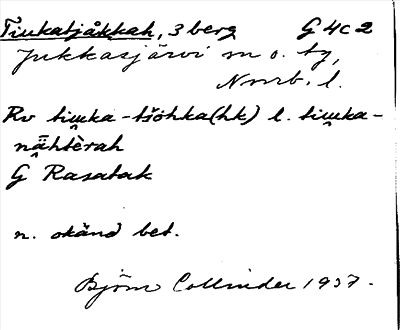 Tiukatjåkkah, 3 berg G 4c2
Jukkasjärvi sn o. tg,
Nmrb. l.
Rv tiu̯ka-tšohka(hk) l. tiu̯ka-
nāhtèrah
G Rasatak
n. okänd bet.
Björn Collinder 1937.